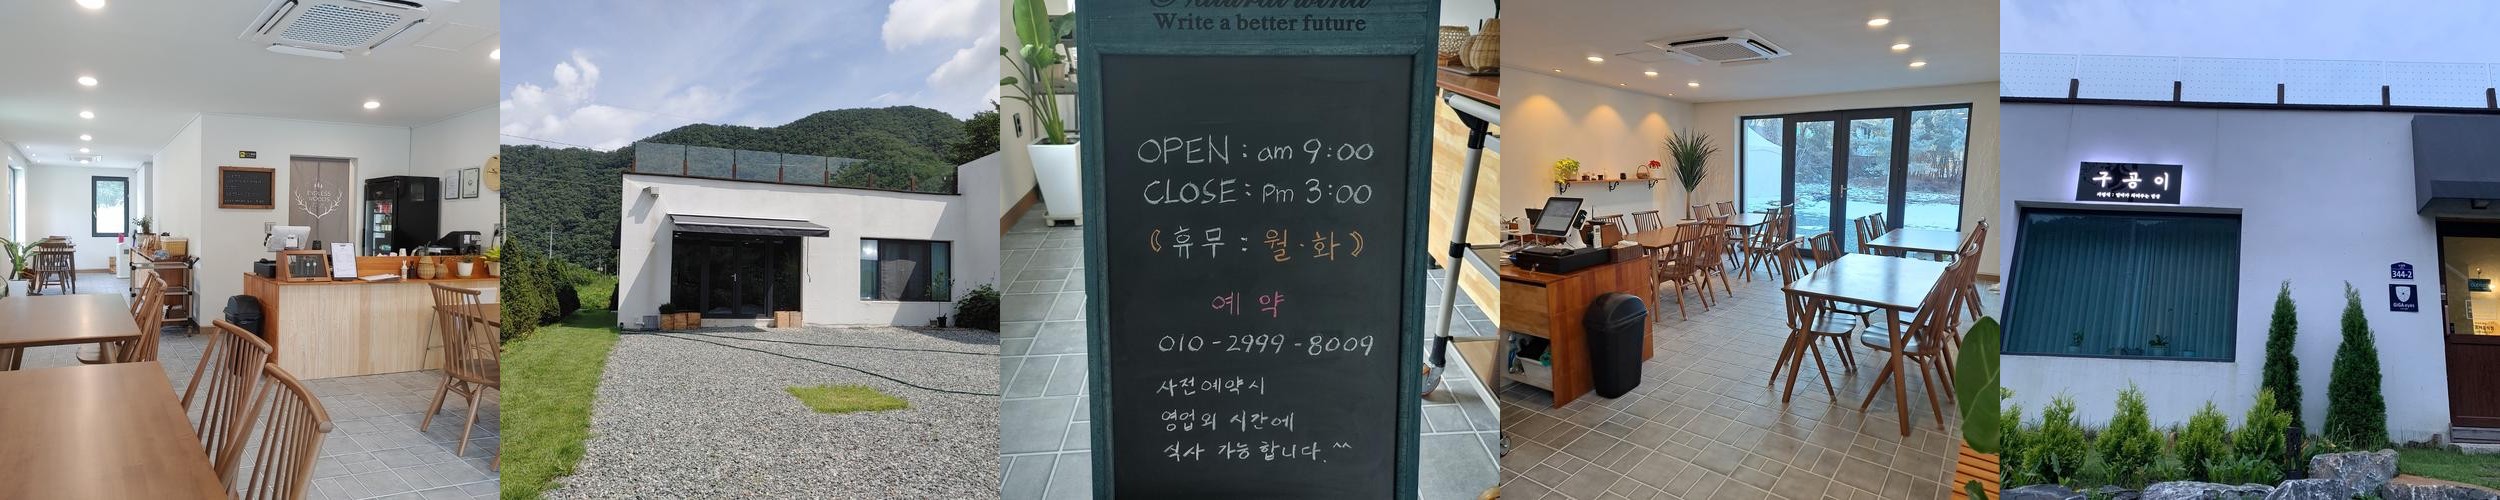 ENDLESS
WOODS
Natural wind
Write a better future
OPEN : am 9:00
CLOSE : pm 3:00
《휴무 : 월·화》
예약
010-2999-8009
사전예약시
영업외 시간에
식사 가능합니다.^^
구공이
344-2
GIGAeyes